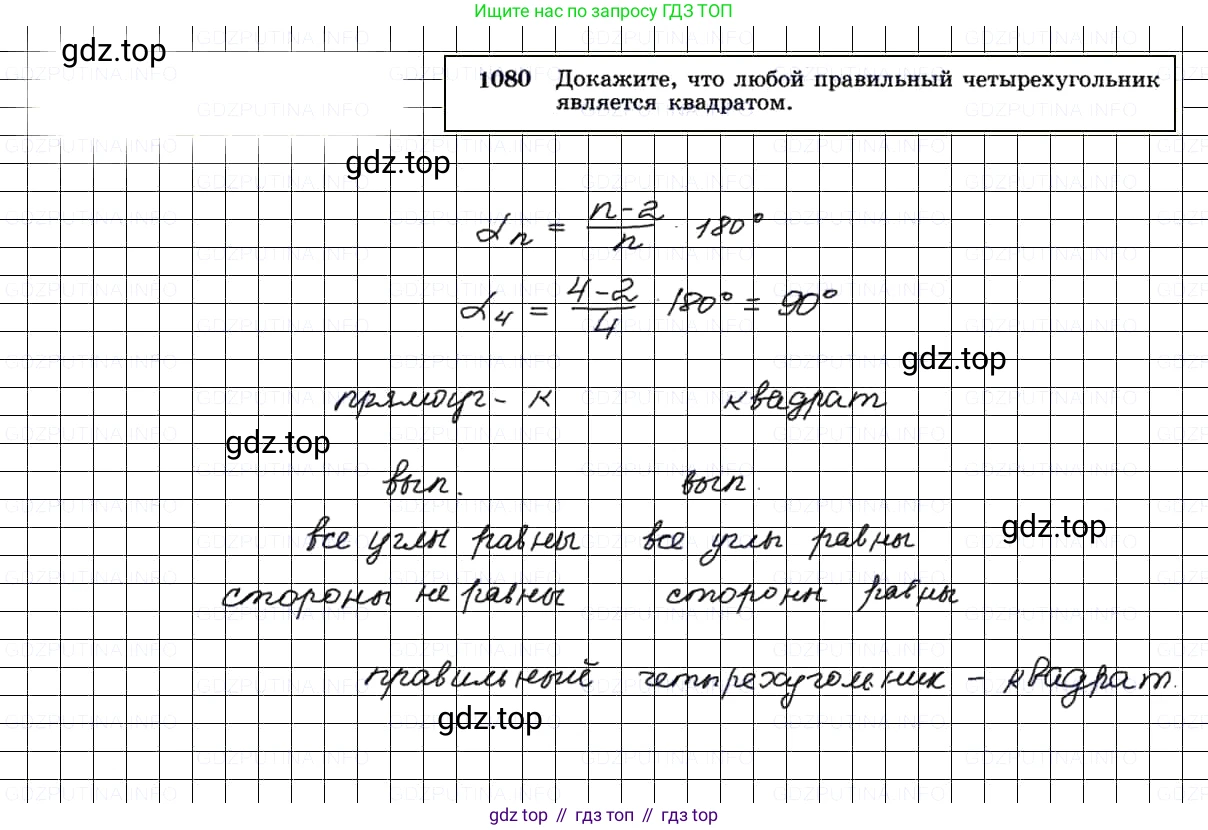 Ищите нас по запросу ГДЗ ТОП
gdz.top
1080 Докажите, что любой правильный четырехугольник
является квадратом.
gdz.top
αₙ = (n-2)/n · 180°
α₄ = (4-2)/4 · 180° = 90°
gdz.top
прямоуг-к квадрат
gdz.top
вып. вып.
все углы равны все углы равны
gdz.top
стороны не равны стороны равны
правильный четырехугольник - квадрат.
gdz.top
gdz топ // гдз топ // гдз top